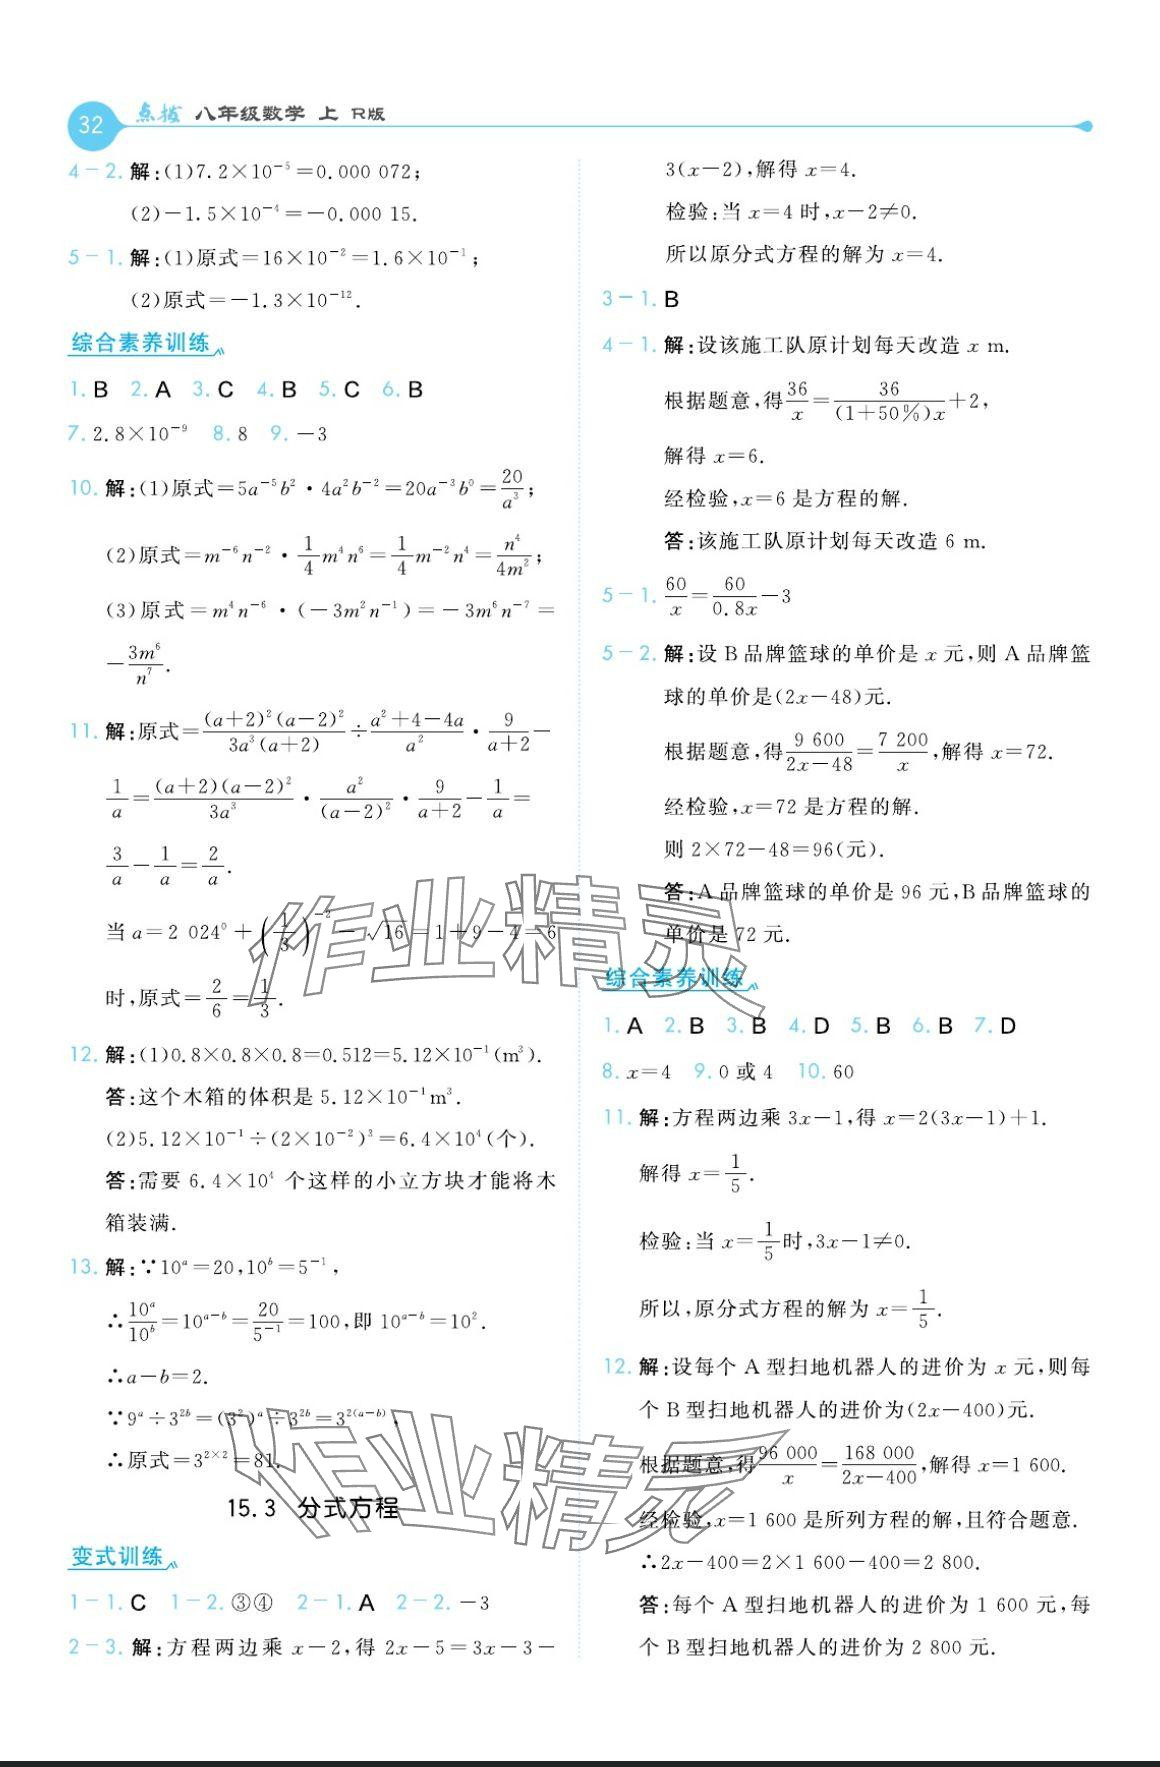 32 点拨 八年级数学 上 R版
4-2. 解:(1)7.2×10⁻⁵=0.000 072;
(2)-1.5×10⁻⁴=-0.000 15.
5-1. 解:(1)原式=16×10⁻²=1.6×10⁻¹;
(2)原式=-1.3×10⁻¹².
综合素养训练
1. B 2. A 3. C 4. B 5. C 6. B
7. 2.8×10⁻⁹ 8. 8 9. -3
10. 解:(1)原式=5a⁻⁵b²·4a²b⁻²=20a⁻³b⁰=20/a³;
(2)原式=m⁻⁶n⁻²·1/4 m⁴n⁶=1/4 m⁻²n⁴=n⁴/4m²;
(3)原式=m⁴n⁻⁶·(-3m²n⁻¹)=-3m⁶n⁻⁷=
-3m⁶/n⁷.
11. 解:原式=(a+2)²(a-2)²/3a³(a+2)÷a²+4-4a/a²·9/a+2-
1/a=(a+2)(a-2)²/3a³·a²/(a-2)²·9/a+2-1/a=
3/a-1/a=2/a.
当a=2 024⁰+(1/3)⁻²-√16=1+9-4=6
时,原式=2/6=1/3.
12. 解:(1)0.8×0.8×0.8=0.512=5.12×10⁻¹(m³).
答:这个木箱的体积是5.12×10⁻¹m³.
(2)5.12×10⁻¹÷(2×10⁻²)³=6.4×10⁴(个).
答:需要6.4×10⁴个这样的小立方块才能将木
箱装满.
13. 解:∵10ᵃ=20,10ᵇ=5⁻¹,
∴10ᵃ/10ᵇ=10ᵃ⁻ᵇ=20/5⁻¹=100,即10ᵃ⁻ᵇ=10².
∴a-b=2.
∵9ᵃ÷3²ᵇ=(3²)ᵃ÷3²ᵇ=3²⁽ᵃ⁻ᵇ⁾,
∴原式=3²ˣ²=81.
15.3 分式方程
变式训练
1-1. C 1-2. ③④ 2-1. A 2-2. -3
2-3. 解:方程两边乘x-2,得2x-5=3x-3-
3(x-2),解得x=4.
检验:当x=4时,x-2≠0.
所以原分式方程的解为x=4.
3-1. B
4-1. 解:设该施工队原计划每天改造x m.
根据题意,得36/x=36/(1+50%)x+2,
解得x=6.
经检验,x=6是方程的解.
答:该施工队原计划每天改造6 m.
5-1. 60/x=60/0.8x-3
5-2. 解:设B品牌篮球的单价是x元,则A品牌篮
球的单价是(2x-48)元.
根据题意,得9 600/2x-48=7 200/x,解得x=72.
经检验,x=72是方程的解.
则2×72-48=96(元).
答:A品牌篮球的单价是96元,B品牌篮球的
单价是72元.
综合素养训练
1. A 2. B 3. B 4. D 5. B 6. B 7. D
8. x=4 9. 0或4 10. 60
11. 解:方程两边乘3x-1,得x=2(3x-1)+1.
解得x=1/5.
检验:当x=1/5时,3x-1≠0.
所以,原分式方程的解为x=1/5.
12. 解:设每个A型扫地机器人的进价为x元,则每
个B型扫地机器人的进价为(2x-400)元.
根据题意,得96 000/x=168 000/2x-400,解得x=1 600.
经检验,x=1 600是所列方程的解,且符合题意.
∴2x-400=2×1 600-400=2 800.
答:每个A型扫地机器人的进价为1 600元,每
个B型扫地机器人的进价为2 800元.
作业精灵
作业精灵